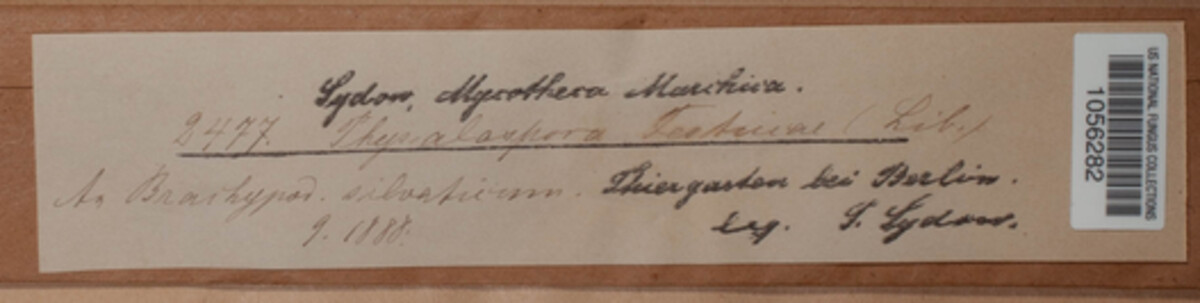 Sydow, Mycotheca Marchica.
2477. Physalospora Festucae (Lib.)
An Brachypod. silvaticum. Thiergarten bei Berlin.
9. 1888. leg. P. Sydow.
US NATIONAL FUNGUS COLLECTIONS
1056282